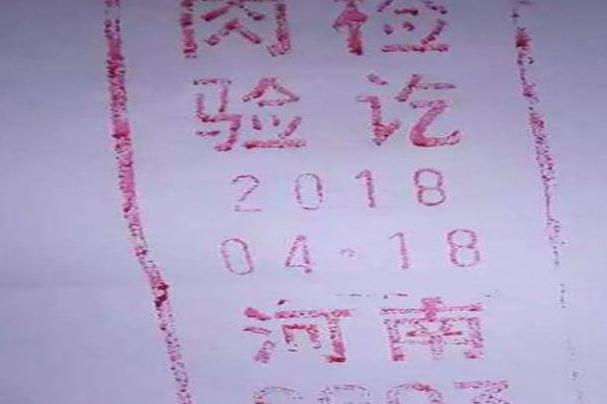 肉检
验讫
2018
04.18
河南